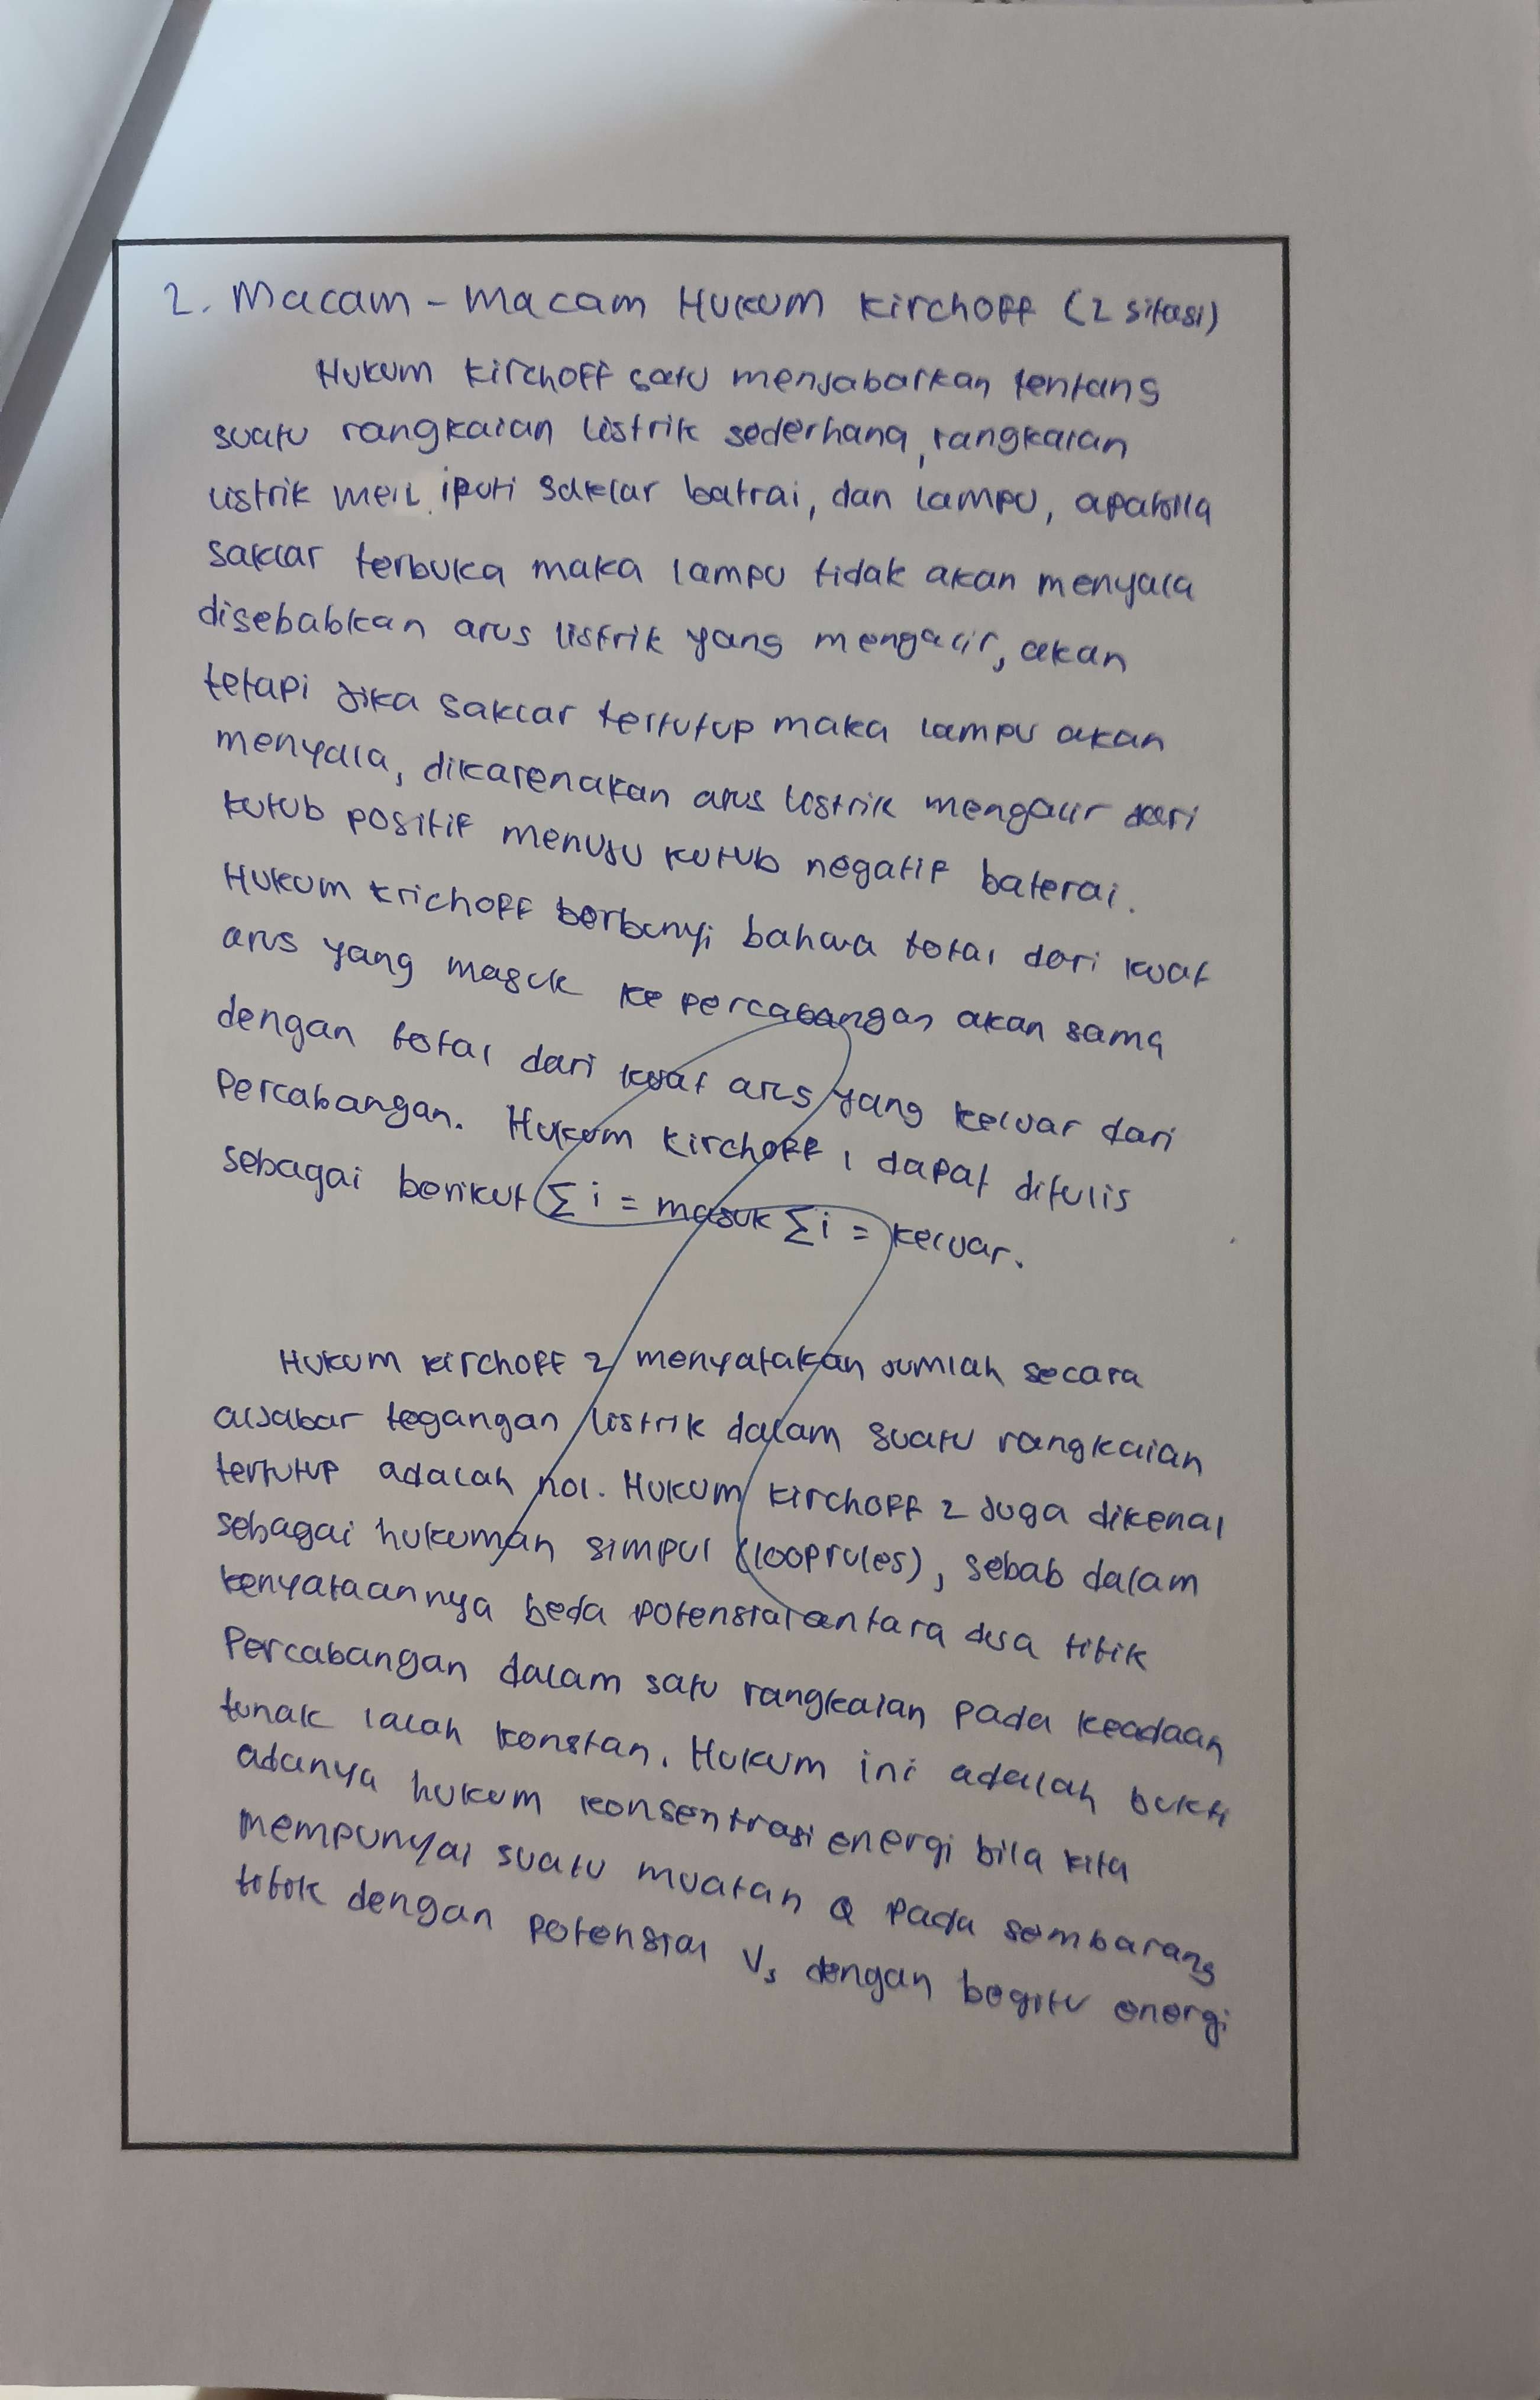 2. Macam - Macam Hukum Kirchoff (2 sitasi)
Hukum Kirchoff satu menjabarkan tentang
suatu rangkaian listrik sederhana, rangkaian
listrik meliputi saklar batrai, dan lampu, apabila
saklar terbuka maka lampu tidak akan menyala
disebabkan arus listrik yang mengalir, akan
tetapi jika saklar tertutup maka lampu akan
menyala, dikarenakan arus listrik mengalir dari
kutub positif menuju kutub negatif baterai.
Hukum Krichoff berbunyi bahwa total dari kuat
arus yang masuk ke percabangan akan sama
dengan total dari kuat arus yang keluar dari
Percabangan. Hukum Kirchoff 1 dapat ditulis
sebagai berikut Σi = masuk Σi = keluar.
Hukum Kirchoff 2 menyatakan jumlah secara
aljabar tegangan listrik dalam suatu rangkaian
tertutup adalah nol. Hukum Kirchoff 2 juga dikenal
sebagai hukuman simpul (looprules), sebab dalam
kenyataannya beda potensial antara dua titik
Percabangan dalam satu rangkaian pada keadaan
tunak ialah konstan. Hukum ini adalah bukti
adanya hukum konsentrasi energi bila kita
mempunyai suatu muatan Q pada sembarang
totok dengan potensial V, dengan begitu energi